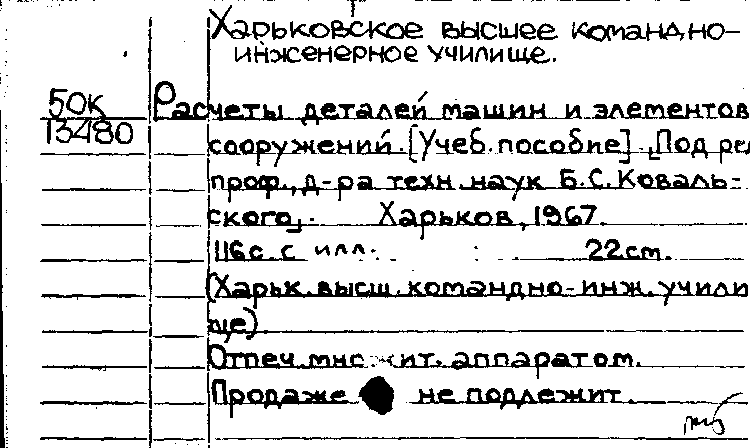 Харьковское высшее командно-
инженерное училище.
50К
13480
Расчеты деталей машин и элементов
сооружений. [Учеб. пособие]. Под ре
проф., д-ра техн. наук Б.С. Коваль-
ского. Харьков, 1967.
116 с. с илл. 22 см.
(Харьк. высш. командно-инж. учили
ще).
Отпеч. множит. аппаратом.
Продаже не подлежит.